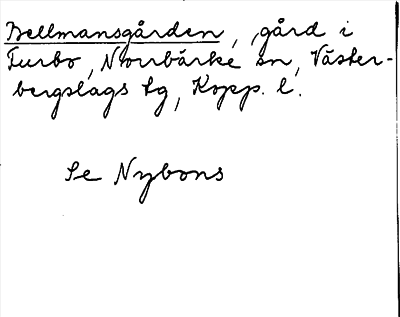 Bellmansgården, gård i
Turbo, Norrbärke sn, Väster-
bergslags tg, Kopp. l.
Se Nybons